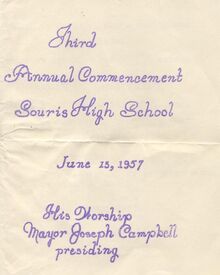 Third
Annual Commencement
Souris High School
June 15, 1957
His Worship
Mayor Joseph Campbell
presiding